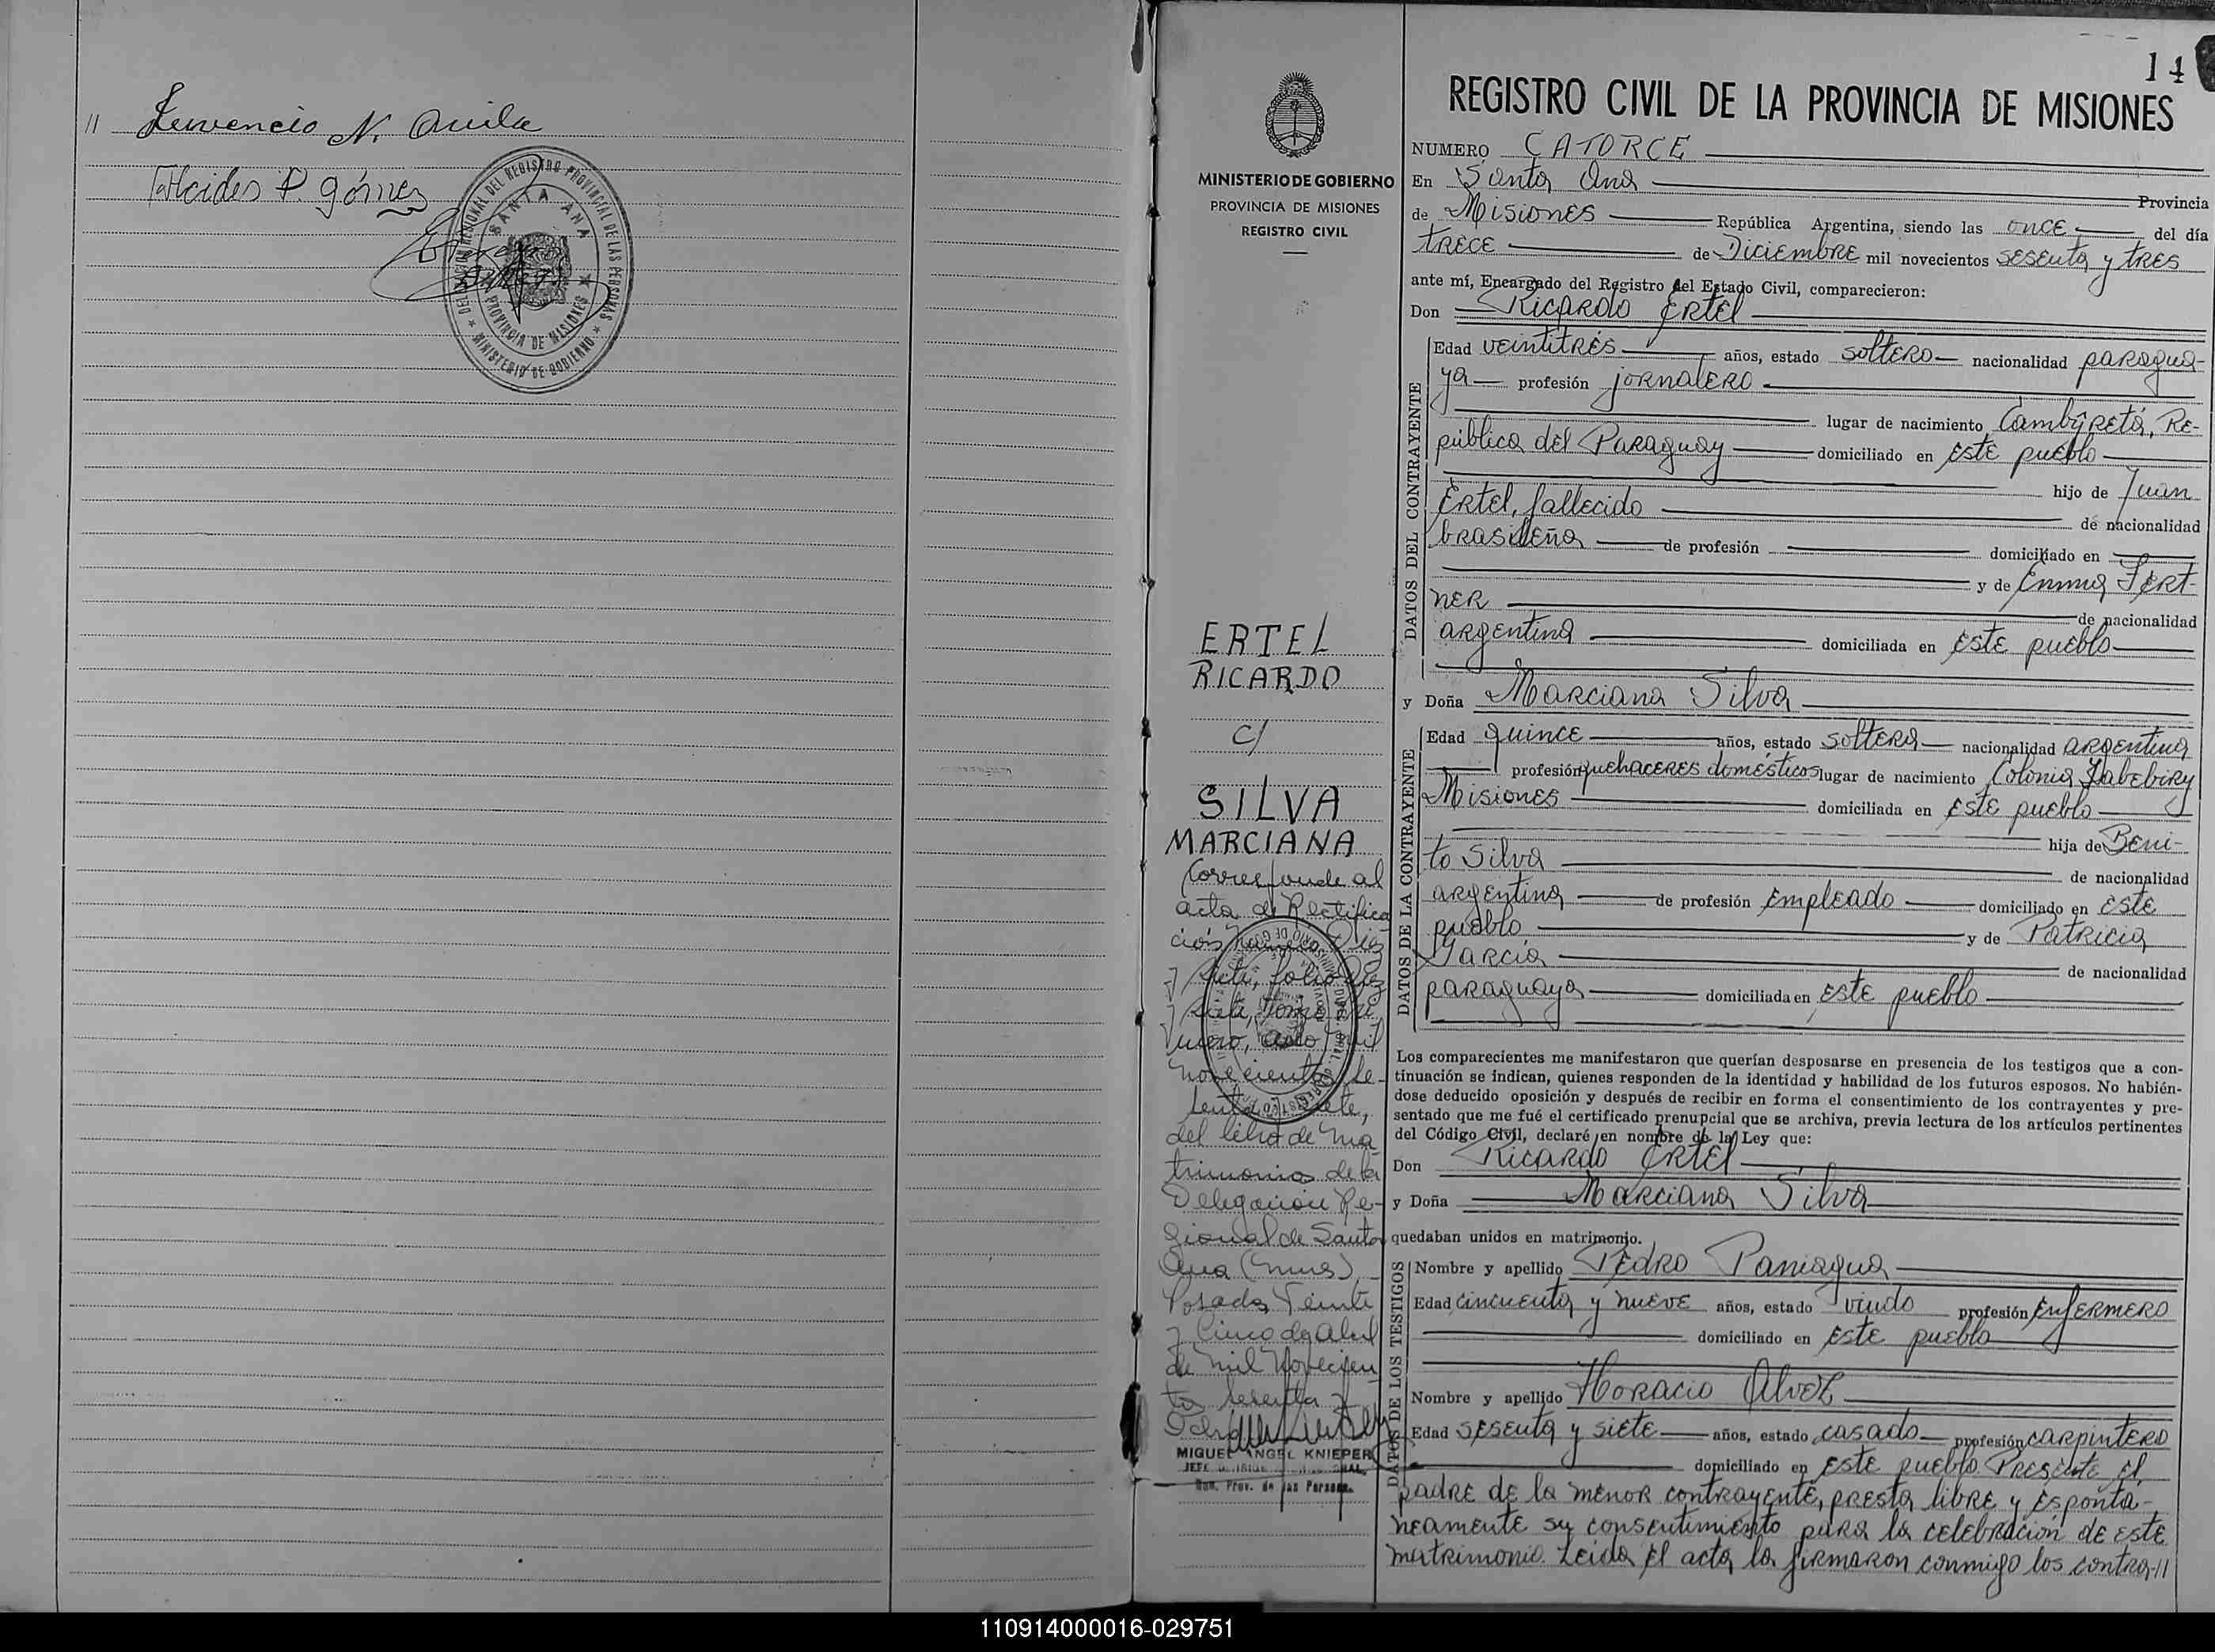 // Juvencio N. Avila
Alcides P. Gómez
DELEGACION REGIONAL DEL REGISTRO PROVINCIAL DE LAS PERSONAS
SANTA ANA
PROVINCIA DE MISIONES
MINISTERIO DE GOBIERNO
14
MINISTERIO DE GOBIERNO
PROVINCIA DE MISIONES
REGISTRO CIVIL
ERTEL
RICARDO
c/
SILVA
MARCIANA
Corresponde al
acta de Rectifica
ción número Diez
y siete, folio Diez
y siete, tomo
número, año mil
novecientos se-
senta y siete,
del libro de ma
trimonios de la
Delegación Re-
gional de Santa
Ana (Mnes).
Posadas, Veinti
y Cinco de Abril
de mil Novecien
tos sesenta y
Ocho
MIGUEL ANGEL KNIEPER
JEFE
Reg. Prov. de las Personas
REGISTRO CIVIL DE LA PROVINCIA DE MISIONES
NUMERO CATORCE
En Santa Ana Provincia
de Misiones República Argentina, siendo las once del día
trece de Diciembre mil novecientos sesenta y tres
ante mí, Encargado del Registro del Estado Civil, comparecieron:
Don Ricardo Ertel
DATOS DEL CONTRAYENTE
Edad veintitrés años, estado soltero nacionalidad paragua-
ya profesión jornalero
lugar de nacimiento Cambyretá, Re-
pública del Paraguay domiciliado en este pueblo
hijo de Juan
Ertel, fallecido de nacionalidad
brasileña de profesión domiciliado en
y de Emma Fert-
ner de nacionalidad
argentina domiciliada en este pueblo
y Doña Marciana Silva
DATOS DE LA CONTRAYENTE
Edad quince años, estado soltera nacionalidad argentina
profesión quehaceres domésticos lugar de nacimiento Colonia Yabebiry
Misiones domiciliada en este pueblo
hija de Beni-
to Silva de nacionalidad
argentina de profesión empleado domiciliado en este
pueblo y de Patricia
García de nacionalidad
paraguaya domiciliada en este pueblo
Los comparecientes me manifestaron que querían desposarse en presencia de los testigos que a con-
tinuación se indican, quienes responden de la identidad y habilidad de los futuros esposos. No habién-
dose deducido oposición y después de recibir en forma el consentimiento de los contrayentes y pre-
sentado que me fué el certificado prenupcial que se archiva, previa lectura de los artículos pertinentes
del Código Civil, declaré en nombre de la Ley que:
Don Ricardo Ertel
y Doña Marciana Silva
quedaban unidos en matrimonio.
DATOS DE LOS TESTIGOS
Nombre y apellido Pedro Paniagua
Edad cincuenta y nueve años, estado viudo profesión enfermero
domiciliado en este pueblo
Nombre y apellido Horacio Alvez
Edad sesenta y siete años, estado casado profesión carpintero
domiciliado en este pueblo. Presente el
padre de la menor contrayente, presta libre y espontá-
neamente su consentimiento para la celebración de este
matrimonio. Leída el acta la firmaron conmigo los contra-//
110914000016-029751